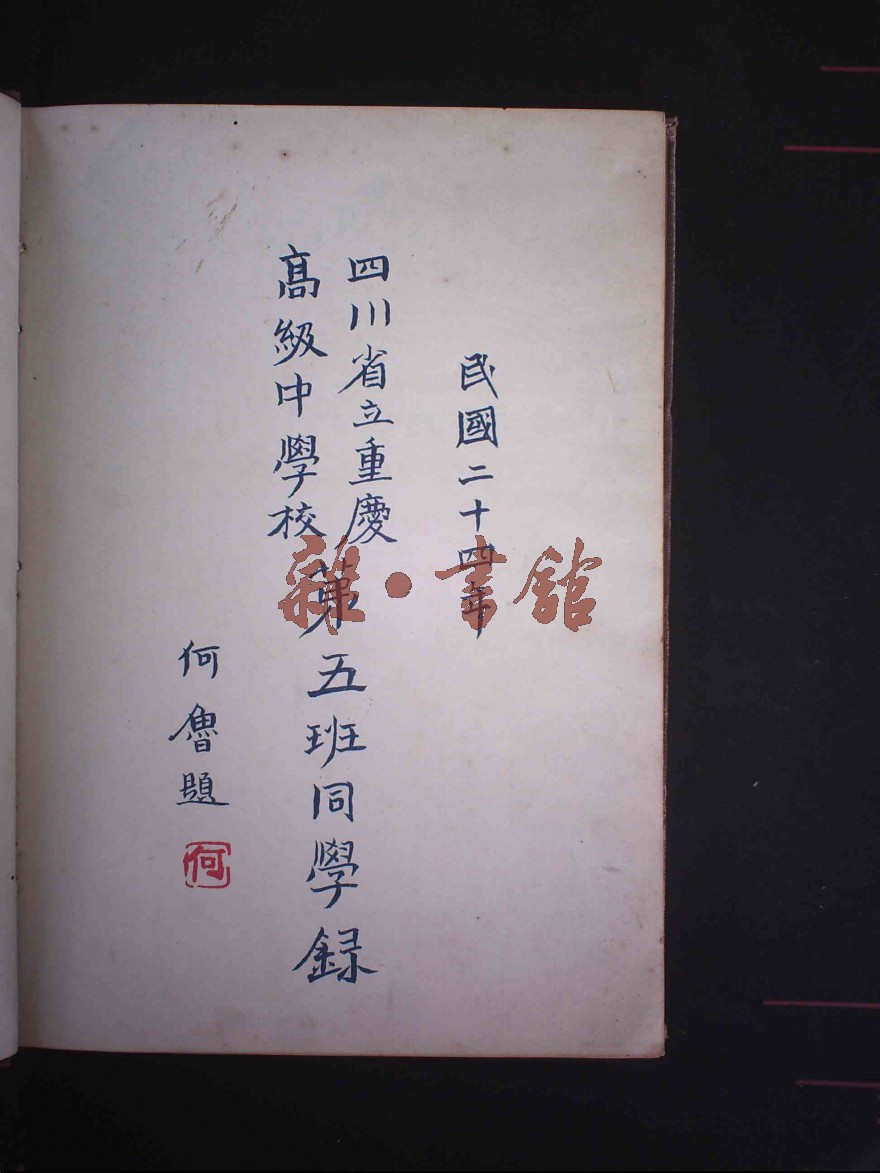 民國二十四年
四川省立重慶
高級中學校
第五班同學录
何魯題
何
雜·書館